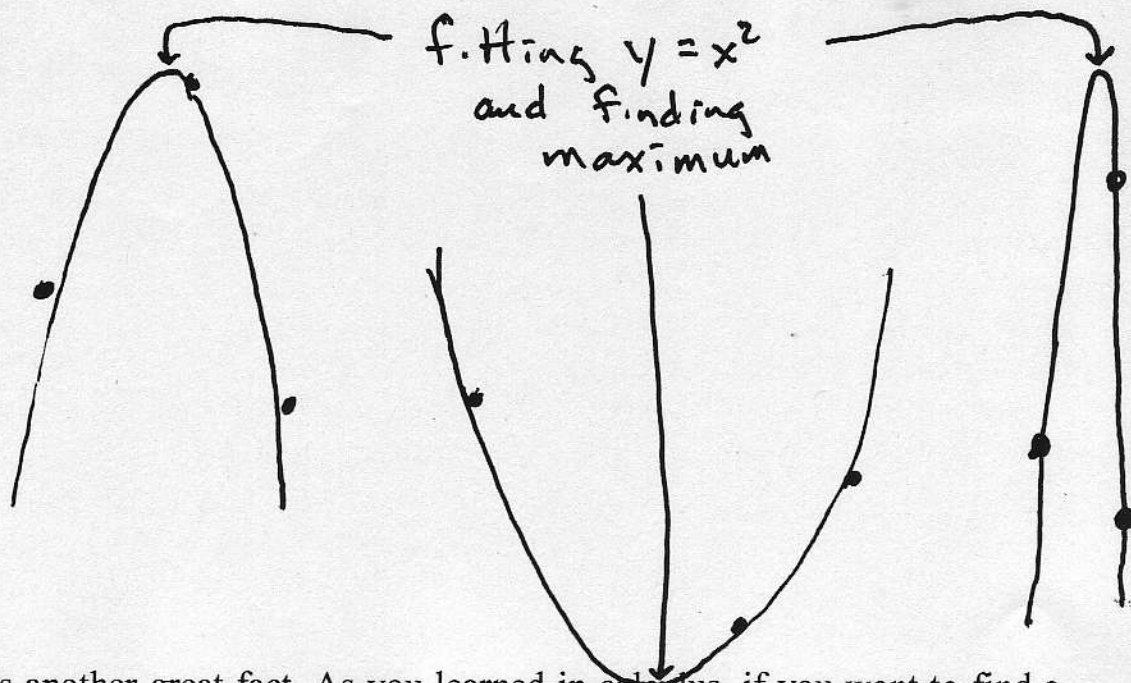 fitting y = x²
and finding
maximum
s another great fact. As you learned in calculus, if you want to find a